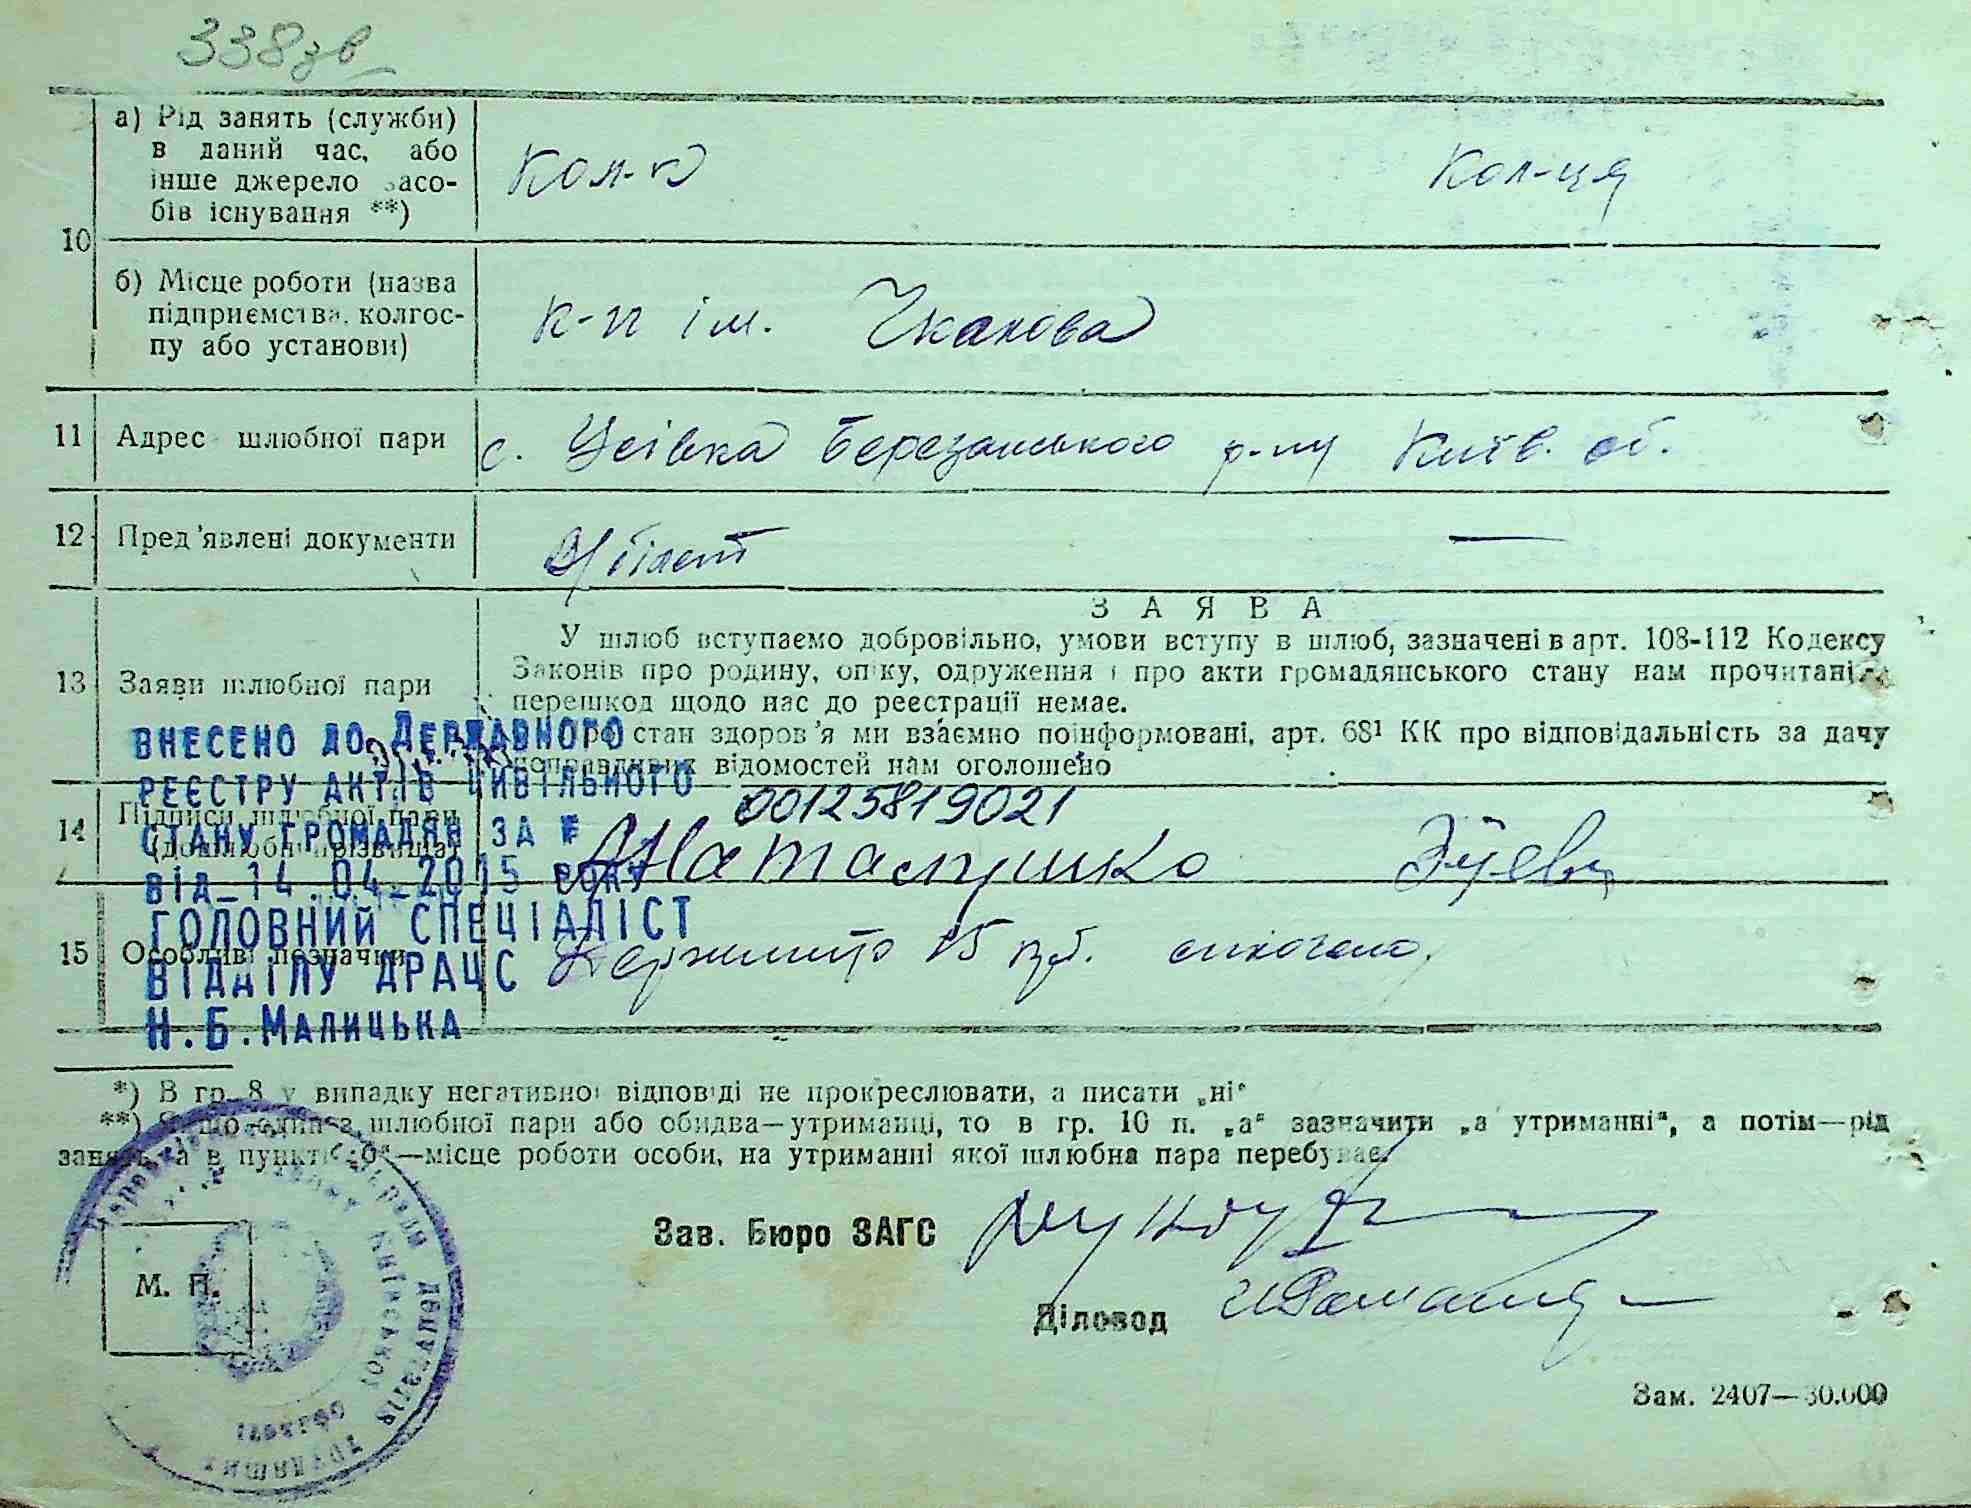 338зв
10
а) Рід занять (служби)
в даний час, або
інше джерело засо-
бів існування **)
Кол-к
Кол-ця
б) Місце роботи (назва
підприємства, колгос-
пу або установи)
к-п ім. Чкалова
11 Адрес шлюбної пари
с. Усівка Березанського р-ну Київ. об.
12 Пред'явлені документи
В/білет —
ЗАЯВА
13 Заяви шлюбної пари
У шлюб вступаємо добровільно, умови вступу в шлюб, зазначені в арт. 108-112 Кодексу
Законів про родину, опіку, одруження і про акти громадянського стану нам прочитані,
перешкод щодо нас до реєстрації немає.
Про стан здоров'я ми взаємно поінформовані, арт. 68¹ КК про відповідальність за дачу
неправдивих відомостей нам оголошено
ВНЕСЕНО ДО ДЕРЖАВНОГО
РЕЄСТРУ АКТІВ ЦИВІЛЬНОГО
СТАНУ ГРОМАДЯН ЗА №
00125819021
ВІД 14.04.2015 РОКУ
ГОЛОВНИЙ СПЕЦІАЛІСТ
ВІДДІЛУ ДРАЦС
Н.Б.МАЛИЦЬКА
14 Підписи шлюбної пари
(дошлюбні прізвища)
15 Особливі позначки
Держмито 15 рб.
*) В гр. 8 у випадку негативної відповіді не прокреслювати, а писати „ні“
**) Якщо один з шлюбної пари або обидва—утриманці, то в гр. 10 п. „а“ зазначити „а утриманні“, а потім—рід
занять, а в пункті „б“—місце роботи особи, на утриманні якої шлюбна пара перебуває.
Зав. Бюро ЗАГС
Діловод
М. П.
депутатів
трудящих
Київської
області
Зам. 2407—30.000